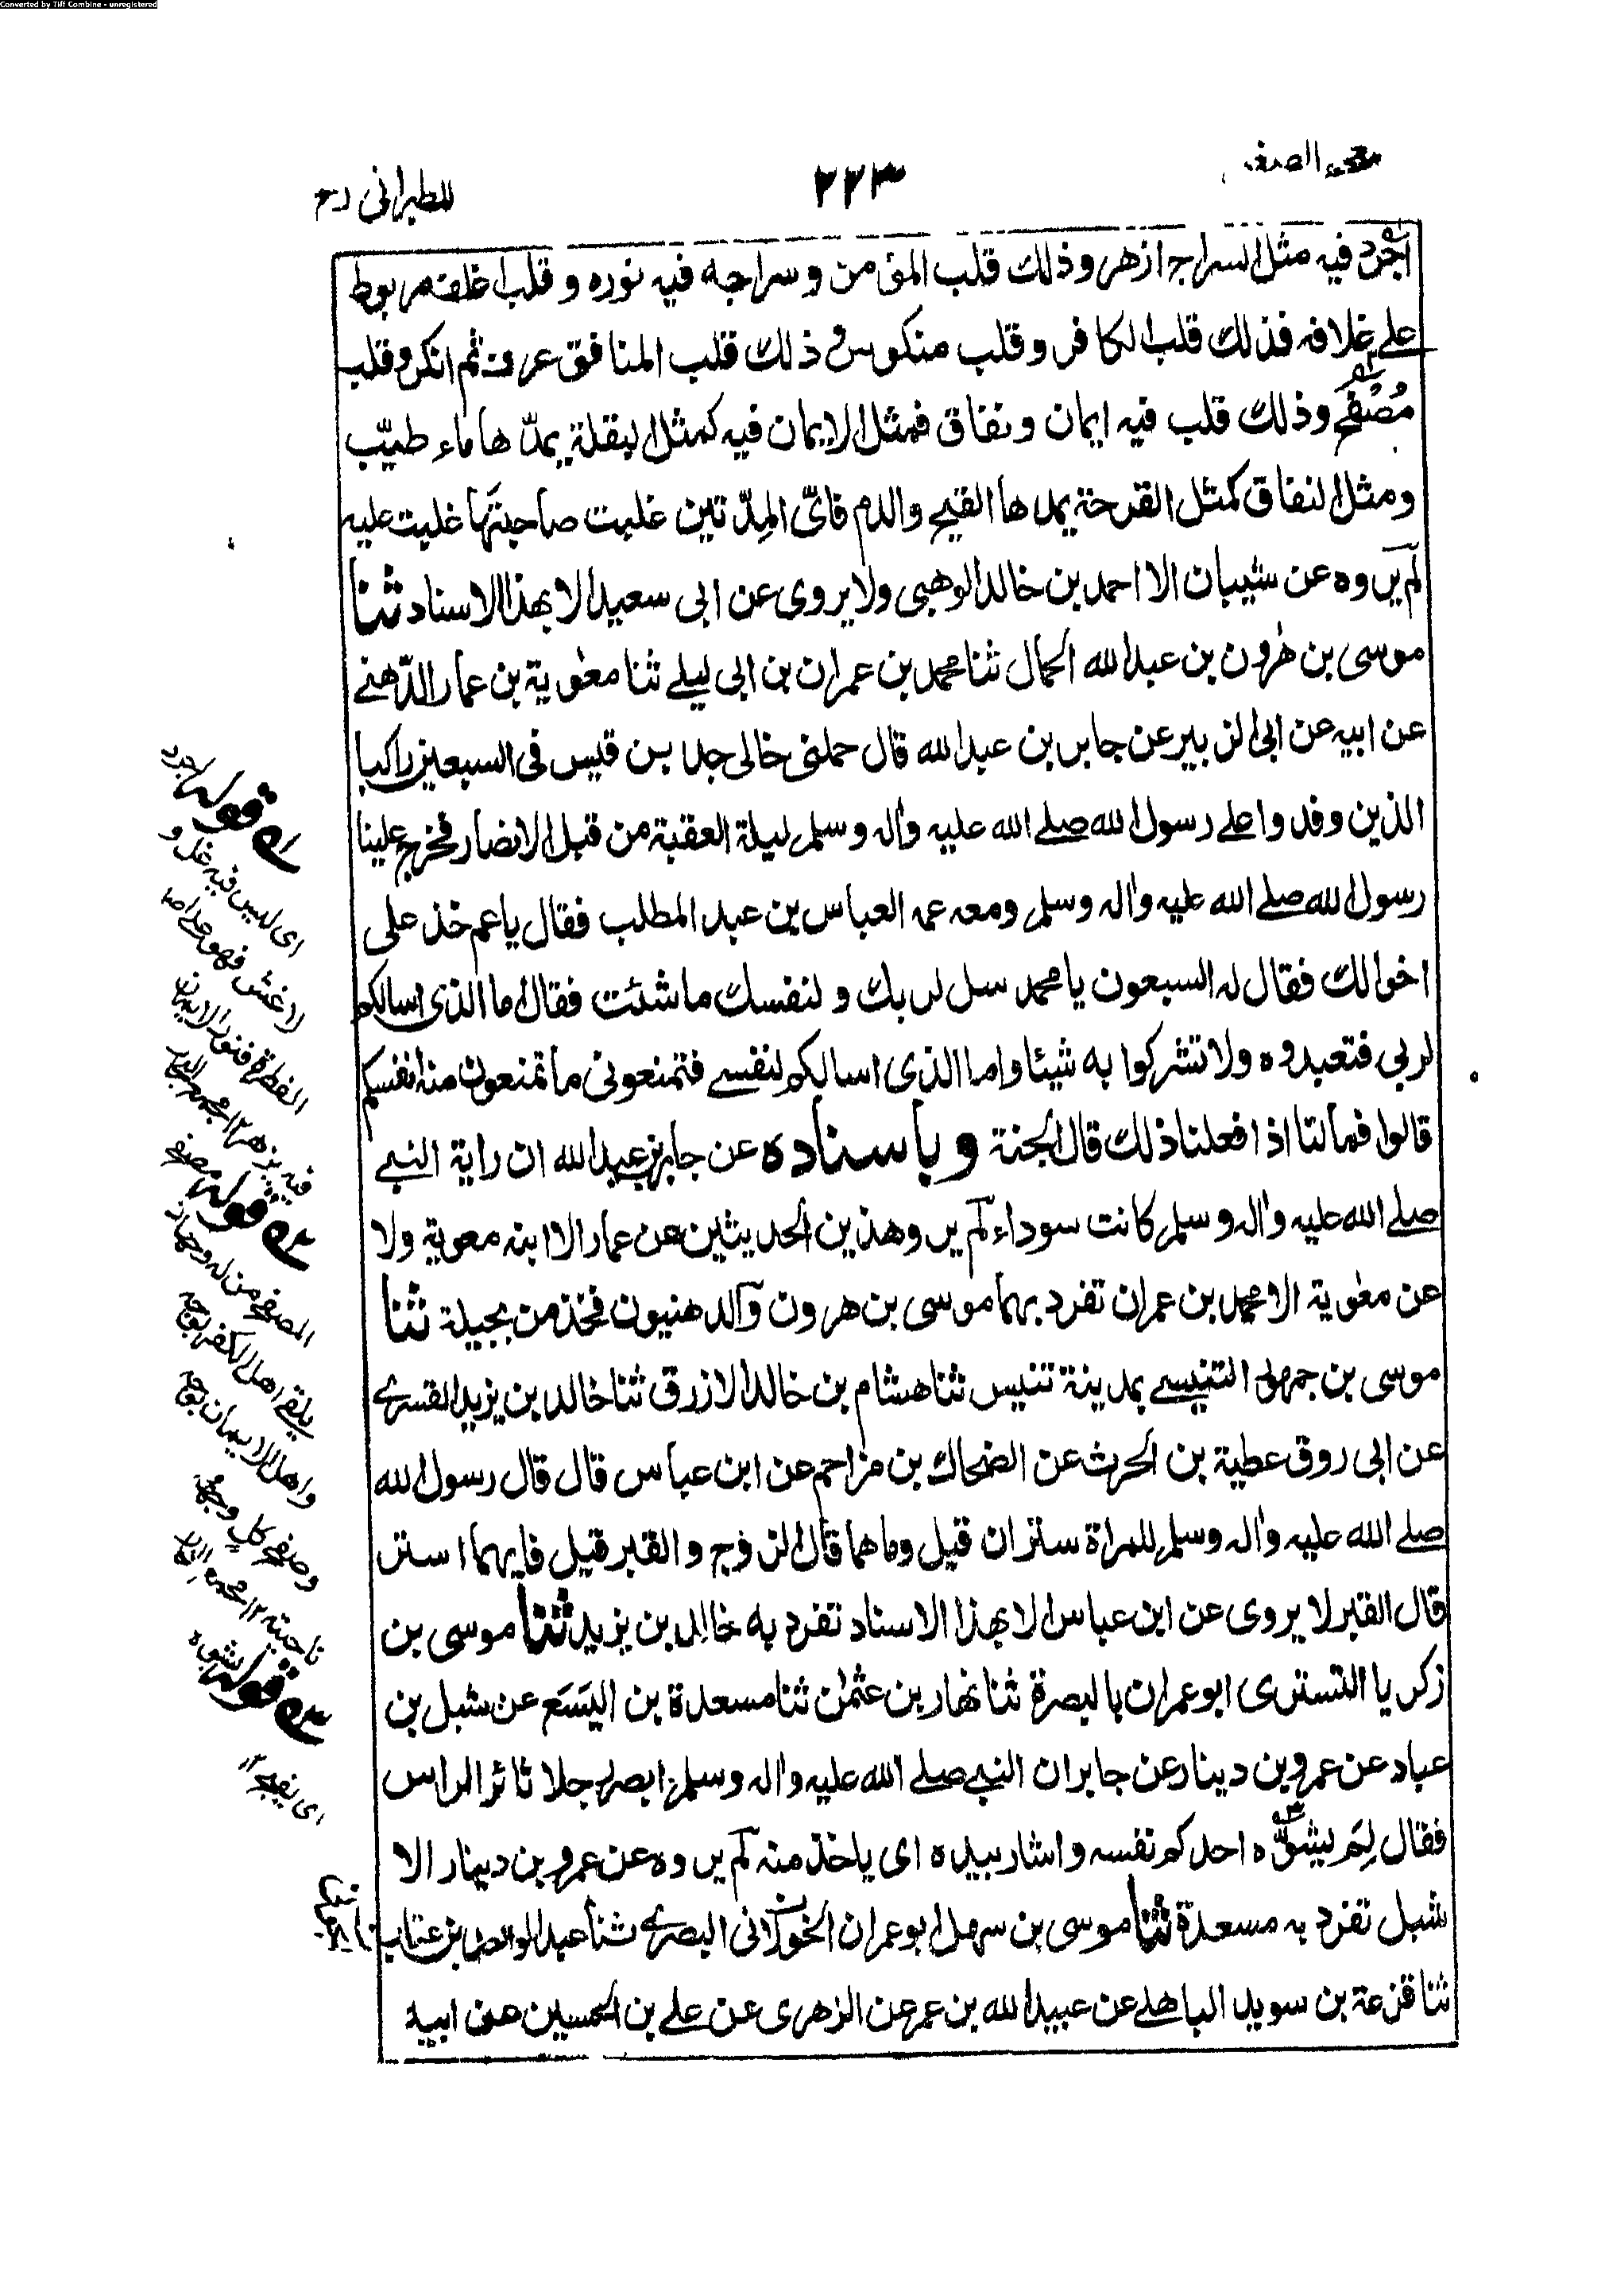 Converted by Tiff Combine - unregistered
الصغير
٢٢٣
للطبرانی رح
اجرد فيه مثل السراج ازهر وذلك قلب المؤمن وسراجه فيه نوره وقلب اغلف مربوط
علے غلافه فذلك قلب الكافر وقلب منكوس وذلك قلب المنافق عرف ثم انكر وقلب
مُصْفَح وذلك قلب فيه ايمان ونفاق فمثل الايمان فيه كمثل البقلة يمدّها ماء طيّب
ومثل النفاق كمثل القرحة يمدها القيح والدم فایّ المِدّتين غلبت صاحبتَها غلبت عليه
لم يروه عن شيبان الا احمد بن خالد الوهبی ولا يروی عن ابی سعيد الا بهذا الاسناد ثنا
موسی بن هٰرون بن عبد الله الحمال ثنا محمد بن عمران بن ابی ليلے ثنا معٰوية بن عمار الدّهنے
عن ابيه عن ابی الزبير عن جابر بن عبد الله قال حملنی خالی جد بن قيس فی السبعين راكبا
الذين وفدوا علے رسول الله صلے الله عليه واٰله وسلم ليلة العقبة من قبل الانصار فخرج علينا
رسول الله صلے الله عليه واٰله وسلم ومعه عمه العباس بن عبد المطلب فقال يا عم خذ علی
اخوالك فقال له السبعون يا محمد سل لربك ولنفسك ما شئت فقال اما الذی اسالكم
لربی فتعبدوه ولا تشركوا به شيئا واما الذی اسالكم لنفسے فتمنعونی ما تمنعون منه انفسكم
قالوا فما لنا اذا فعلنا ذلك قال الجنة وباسناده عن جابر بن عبد الله ان راية النبے
صلے الله عليه واٰله وسلم كانت سوداء لم يرو هذين الحديثين عن عمار الا ابنه معوية ولا
عن معٰوية الا محمد بن عمران تفرد بهما موسی بن هرون والدهنيون فخذ من بجيلة ثنا
موسی بن جمهور التنيسے بمدينة تنيس ثنا هشام بن خالد الازرق ثنا خالد بن يزيد القسرے
عن ابی روق عطية بن الحرث عن الضحاك بن مزاحم عن ابن عباس قال قال رسول الله
صلے الله عليه واٰله وسلم للمراة ستران قيل وما هما قال الزوج والقبر قيل فايهما استر
قال القبر لا يروی عن ابن عباس الا بهذا الاسناد تفرد به خالد بن يزيد ثنا موسی بن
زكريا التستری ابو عمران بالبصرة ثنا نهار بن عثمٰن ثنا مسعدة بن اليَسَع عن شبل بن
عباد عن عمرو بن دينار عن جابر ان النبے صلے الله عليه واٰله وسلم ابصر رجلا ثائر الراس
فقال لِمَ يشوّه احدكم نفسه واشار بيده ای ياخذ منه لم يروه عن عمرو بن دينار الا
شبل تفرد به مسعدة ثنا موسی بن سهل ابو عمران الجونی البصرے ثنا عبد الواحد بن عتاب
ثنا قزعة بن سويد الباهلے عن عبيد الله بن عمر عن الزهری عن علے بن الحسين عن ابيه
قوله اجرد
ای ليس فيه غل و
لا غش فهو علے اصل
الفطرة فنور الايمان
فيه يزهر ١٢ مجمع البحار
قوله مصفح
المصفح من له وجهان
يلقے اهل الكفر بوجه
واهل الايمان بوجه
وصفح كل وجهه
ناحيته ١٢
قوله يشوه
ای يقبح ١٢